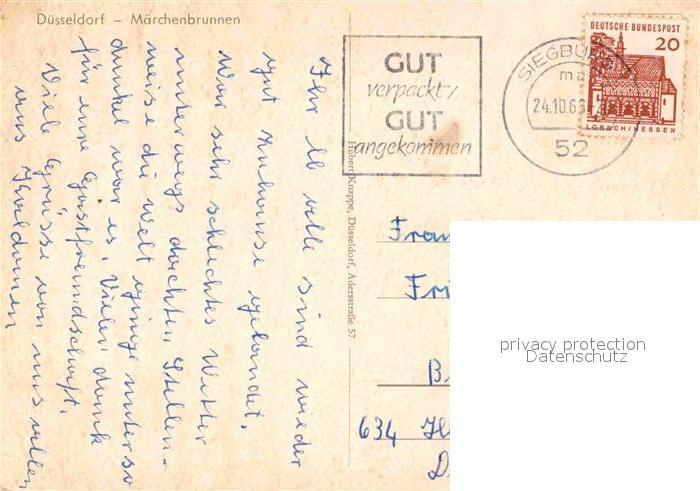 Düsseldorf – Märchenbrunnen
Ihr lb alle sind wieder
gut zuhause gelandet,
War sehr schlechtes Wetter
unterwegs dachten Stellen-
weise die Welt ginge unter so
dunkel war es. Vielen dank
für eure Gastfreundschaft.
Viele Grüsse von uns allen
aus Kaldauen
Hubert Knappe, Düsseldorf, Adersstraße 57
GUT
verpackt/
GUT
angekommen
SIEGBURG
ma
24.10.66
52
DEUTSCHE BUNDESPOST
20
LORSCH/HESSEN
Frau
Fri
B
634
D
privacy protection
Datenschutz